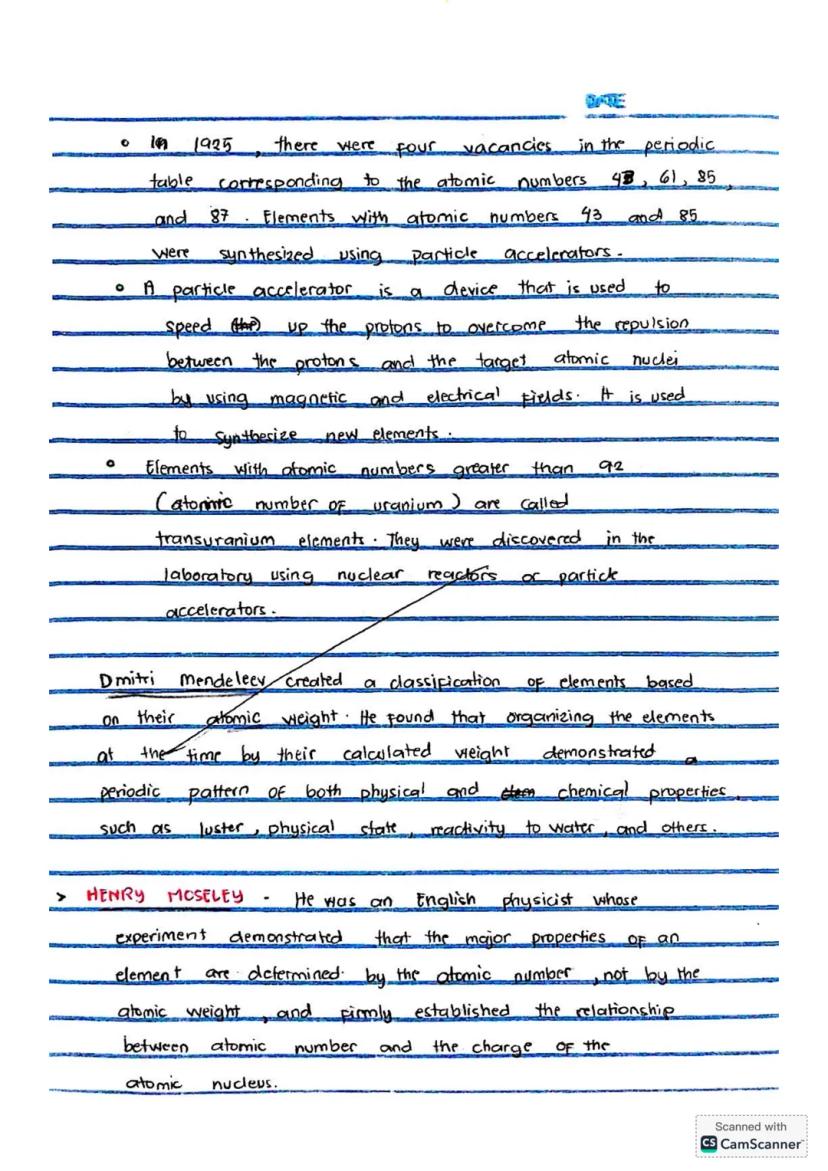 DATE
° In 1925 , there were four vacancies in the periodic
table corresponding to the atomic numbers 43 , 61 , 85 ,
and 87 . Elements with atomic numbers 43 and 85
were synthesized using particle accelerators .
° A particle accelerator is a device that is used to
speed up the protons to overcome the repulsion
between the protons and the target atomic nuclei
by using magnetic and electrical fields . It is used
to synthesize new elements .
° Elements with atomic numbers greater than 92
( atomic number of uranium ) are called
transuranium elements . They were discovered in the
laboratory using nuclear reactors or particle
accelerators .
Dmitri Mendeleev created a classification of elements based
on their atomic weight . He found that organizing the elements
at the time by their calculated weight demonstrated a
periodic pattern of both physical and chemical properties ,
such as luster , physical state , reactivity to water , and others .
> HENRY MOSELEY - He was an English physicist whose
experiment demonstrated that the major properties of an
element are determined by the atomic number , not by the
atomic weight , and firmly established the relationship
between atomic number and the charge of the
atomic nucleus .
Scanned with
CS CamScanner